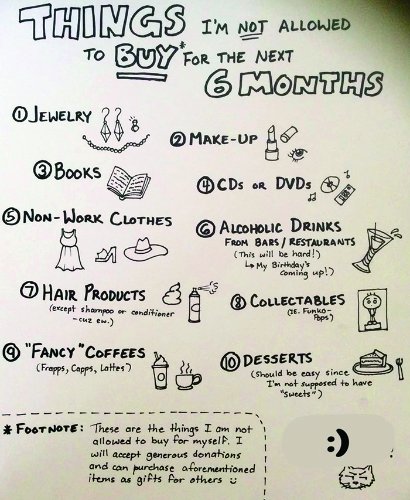 THINGS I'M NOT ALLOWED
TO BUY* FOR THE NEXT
6 MONTHS
① JEWELRY
② MAKE-UP
③ BOOKS
④ CDs OR DVDs
⑤ NON-WORK CLOTHES
⑥ ALCOHOLIC DRINKS
FROM BARS/RESTAURANTS
(This will be hard!)
↳ My Birthday's
coming up!)
⑦ HAIR PRODUCTS
(except shampoo or conditioner
-cuz ew.)
⑧ COLLECTABLES
(IE. Funko-
Pops)
⑨ "FANCY" COFFEES
(Frapps, Capps, Lattes)
⑩ DESSERTS
(Should be easy since
I'm not supposed to have
"sweets")
* FOOTNOTE: These are the things I am not
allowed to buy for myself. I
will accept generous donations
and can purchase aforementioned
items as gifts for others ☺
:)